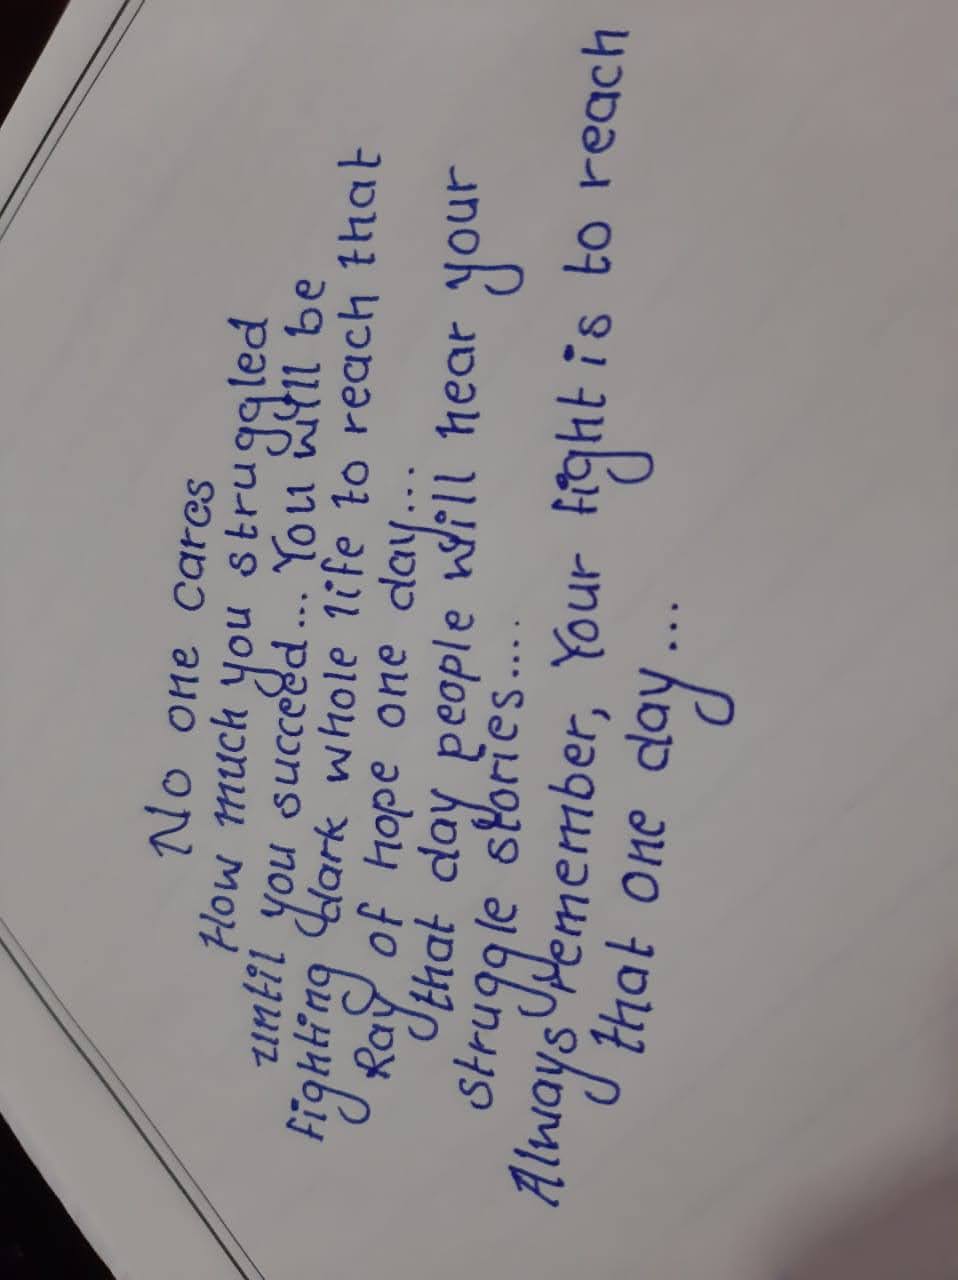 No one cares
How much you struggled
until you succeed... You will be
fighting dark whole life to reach that
Ray of hope one day....
that day people will hear your
struggle stories....
Always remember, Your fight is to reach
that one day...